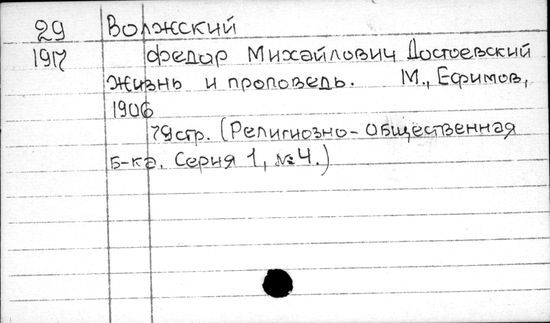 29 Волжский
1917 Федор Михайлович Достоевский
Жизнь и проповедь. М., Ефимов,
1906
79стр. (Религиозно-общественная
б-ка. Серия 1, №4.)